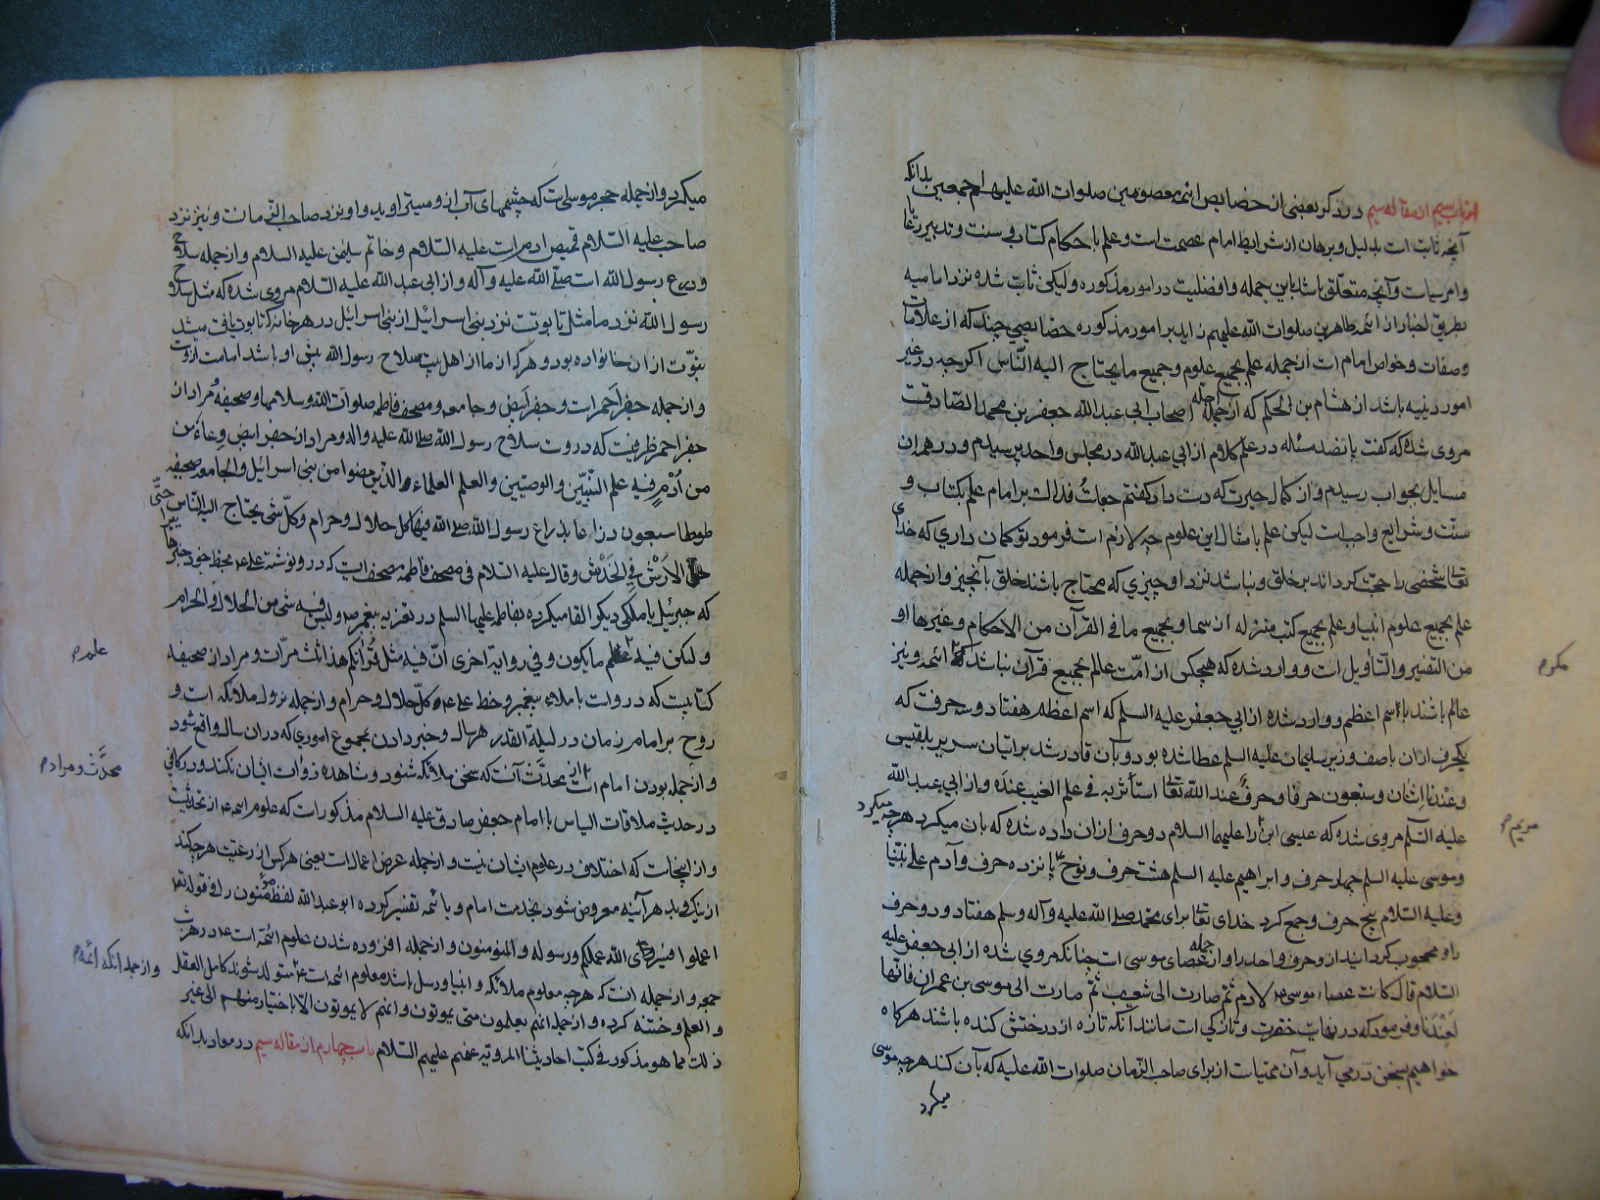 از باب سیم از مقاله سیم در ذکر بعضی از خصایص ائمه معصومین صلوات الله علیهم اجمعین بدانکه
آنچه ثابت است بدلیل و برهان از شرایط امام عصمت است و علم باحکام کتاب و سنت و تدبیر رعایا
و امر سیاست و آنچه متعلق باشد باین جمله و افضلیت در امور مذکوره و لیکن ثابت شده نزد امامیه
بطریق اخبار از ائمه طاهرین صلوات الله علیهم زاید بر امور مذکوره خصایصی چند که از علامات
و صفات و خواص امام است از جمله علم بجمیع علوم و جمیع ما یحتاج الیه الناس اگرچه در غیر
امور دینیه باشد از هشام بن الحکم که از جمله اجله اصحاب ابی عبدالله جعفر بن محمد الصادقست
مروی شده که گفت پانصد مسئله در علم کلام از ابی عبدالله در مجلس واحد پرسیدم و در همه آن
مسایل بجواب رسیدم و از کمال حیرت که دست داد گفتم جعلت فداک بر امام علم بکتاب و
سنت و شرایع واجبست لیکن علم بامثال این علوم چه لازم است فرمود تو گمان داری که خدای
تعالی شخصی را حجت گرداند بر خلق و نباشد نزد او چیزی که محتاج باشند خلق بآنچیز و از جمله
علم بجمیع علوم انبیا و علم بجمیع کتب منزله از سما و بجمیع ما فی القرآن من الاحکام و غیرها او
من التفسیر و التأویل است و وارد شده که هیچکس از امت عالم بجمیع قرآن نباشد ائمه و نیز
مکر م
عالم باشند باسم اعظم و وارد شده از ابی جعفر علیه السلم که اسم اعظم هفتاد و سه حرفست که
یکحرف از آن باصف وزیر سلیمان علیه السلم عطا شده بود و بآن قادر شد بر اتیان سریر بلقیس
و عندنا اثنان و سبعون حرفا و حرف عند الله تعالی استأثر به فی علم الغیب عنده و از ابی عبدالله
علیه السلم مروی شده که عیسی ابن را علیهما السلام دو حرف از آن داده شده که بآن میکرد هرچه میکرد
مریم صح
و موسی علیه السلم چهار حرف و ابراهیم علیه السلم هشت حرف و نوح پانزده حرف و آدم علی نبینا
و علیه السلام پنج حرف و جمع کرد خدای تعالی برای محمد صلی الله علیه و آله و سلم هفتاد و دو حرف
را و محجوب گردانید از و حرف واحد را و از جمله عصای موسی است چنانکه مروی شده از ابی جعفر علیه
السلام قال کانت عصاء موسی لآدم ثم صارت الی شعیب ثم صارت الی موسی بن عمران فانها
لعندنا و فرمود که در نهایت خضرت و تازکی است مانند آنکه تازه از درختش کنده باشند هرگاه
خواهیم بسخن در می آید و آن مهیاست از برای صاحب الزمان صلوات الله علیه که بآن کند هرچه موسی
میکرد
میکرد و از جمله حجر موسی است که چشمهای آب از و میتراوید و او نزد صاحب الزمانست و نیز نزد
صاحب علیه السلام قمیص آدمست علیه السلام و خاتم سلیمن علیه السلام و از جمله سلاح
و درع رسول الله است صلی الله علیه و آله و از ابی عبدالله علیه السلام مروی شده که مثل سلاح
رسول الله نزد ما مثل تابوتست نزد بنی اسرائیل از بنی اسرائیل در هر خانه که تابوت یافت میشد
نبوت از آن خانواده بود و هرکه از ما از اهل بیت سلاح رسول الله پیش او باشد امامت از وست
و از جمله جفر احمر است و جفر ابیض و جامعه و مصحف فاطمه صلوات الله و سلامها و صحیفه و مراد از
جفر احمر ظرفیست که در وست سلاح رسول الله صلی الله علیه و اله و مراد از جفر ابیض وعاء من
من ادم فیه علم النبیین و الوصیین و العلم العلماء الذین مضوا من بنی اسرائیل و الجامعه صحیفه
طولها سبعون ذراعا بذراع رسول الله صلی الله فیها کل حلال و حرام و کل شی یحتاج الیه الناس حتی
الارش فی الخدش و قال علیه السلام فی مصحف فاطمه مصحفیست که در و نوشته علی بخط خود خبرها
که جبرئیل یا ملکی دیگر القا میکرده بفاطمه علیها السلم در تعزیه پیغمبر و لیس فیه شی من الحلال و الحرام
و لکن فیه علم ما یکون و فی روایة اخری ان فیه مثل قرآنکم هذا ثلث مرات و مراد از صحیفه
علم م
کتابیست که در وست باملاء پیغمبر و خط علی کل حلال و حرام و از جمله نزول ملائکه است و
روح بر امام زمان در لیلة القدر هر سال و خبر دادن بمجموع اموری که در آن سال واقع شود
و از جمله بودن امام است محدث آنست که سخن ملائکه شنود و مشاهده ذوات ایشان نکند و در کافی
محدث و مراد از م
در حدیث ملاقات الیاس با امام جعفر صادق علیه السلام مذکور است که علوم از تحدیث
و از اینجاست که اختلاف در علوم ایشان نیست و از جمله عرض اعمالست یعنی هرکس از رعیت هرچه کند
از نیک و بد هر آینه معروض شود بخدمت امام و بائمه تفسیر کرده ابو عبدالله لفظ مؤمنون را فی قوله تعا
اعملوا فسیری الله عملکم و رسوله و المؤمنون و از جمله افزوده شدن علوم ائمه است در هر شب
جمعه و از جمله آنست که هرچه معلوم ملائکه و انبیا و رسل باشد معلوم ائمه است متولد شوند کامل العقل
و از جمله آنکه ائمه م
و العلم و ختنه کرده و از جمله انهم یعلمون متی یموتون و انهم لا یموتون الا باختیار منهم الی غیر
ذلک مما هو مذکور فی کتب احادیثنا المرویه عنهم علیهم السلام باب چهارم از مقاله سیم در معاد بدانکه